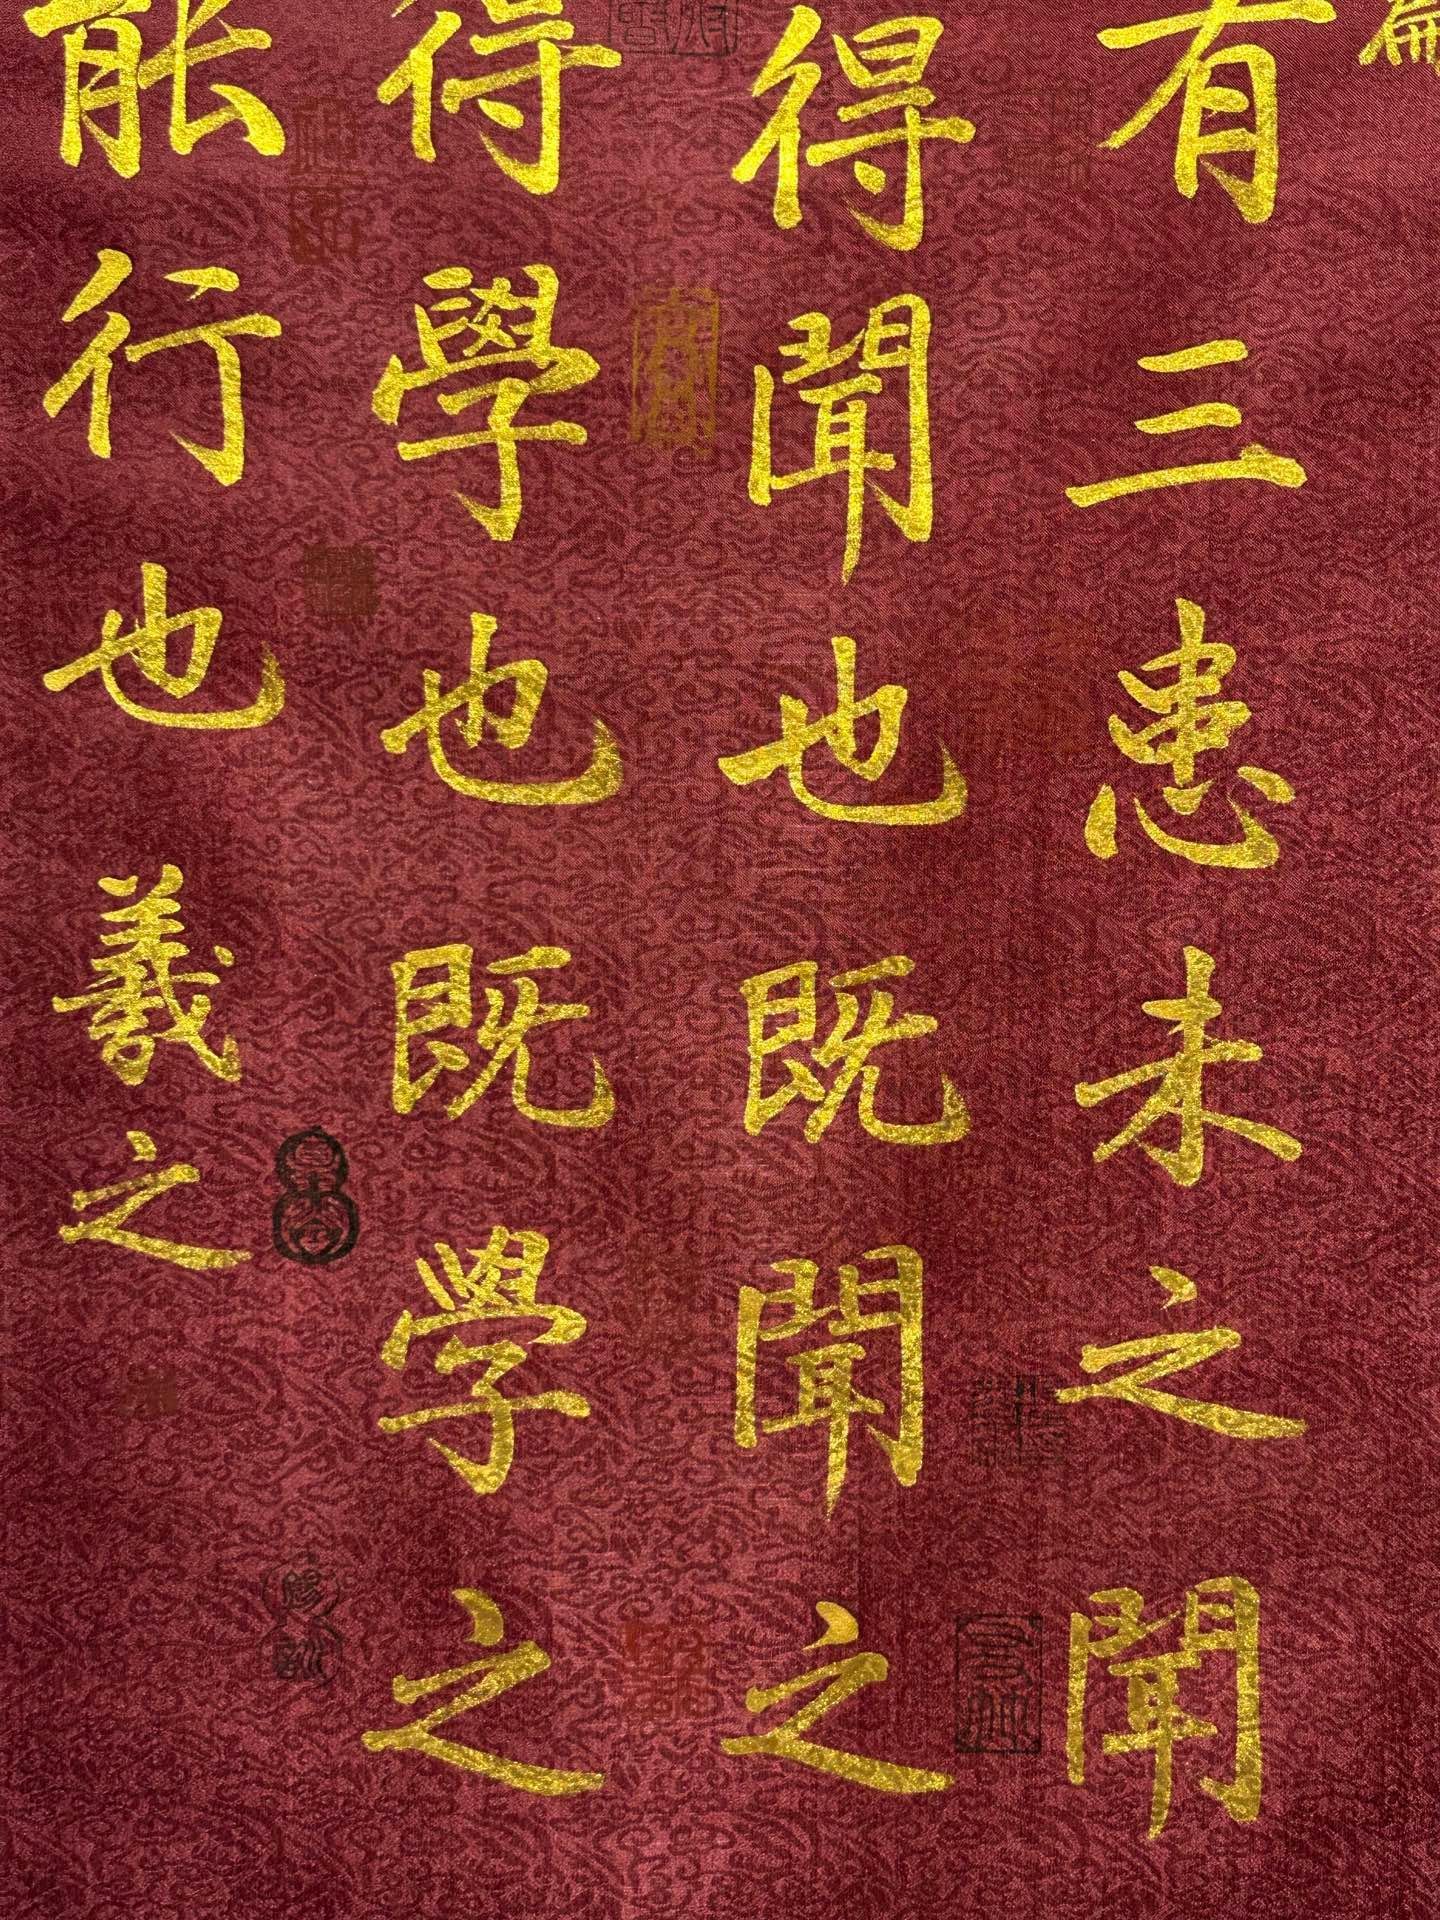 有三患未之聞
得聞也既聞之
得學也既學之
能行也羲之